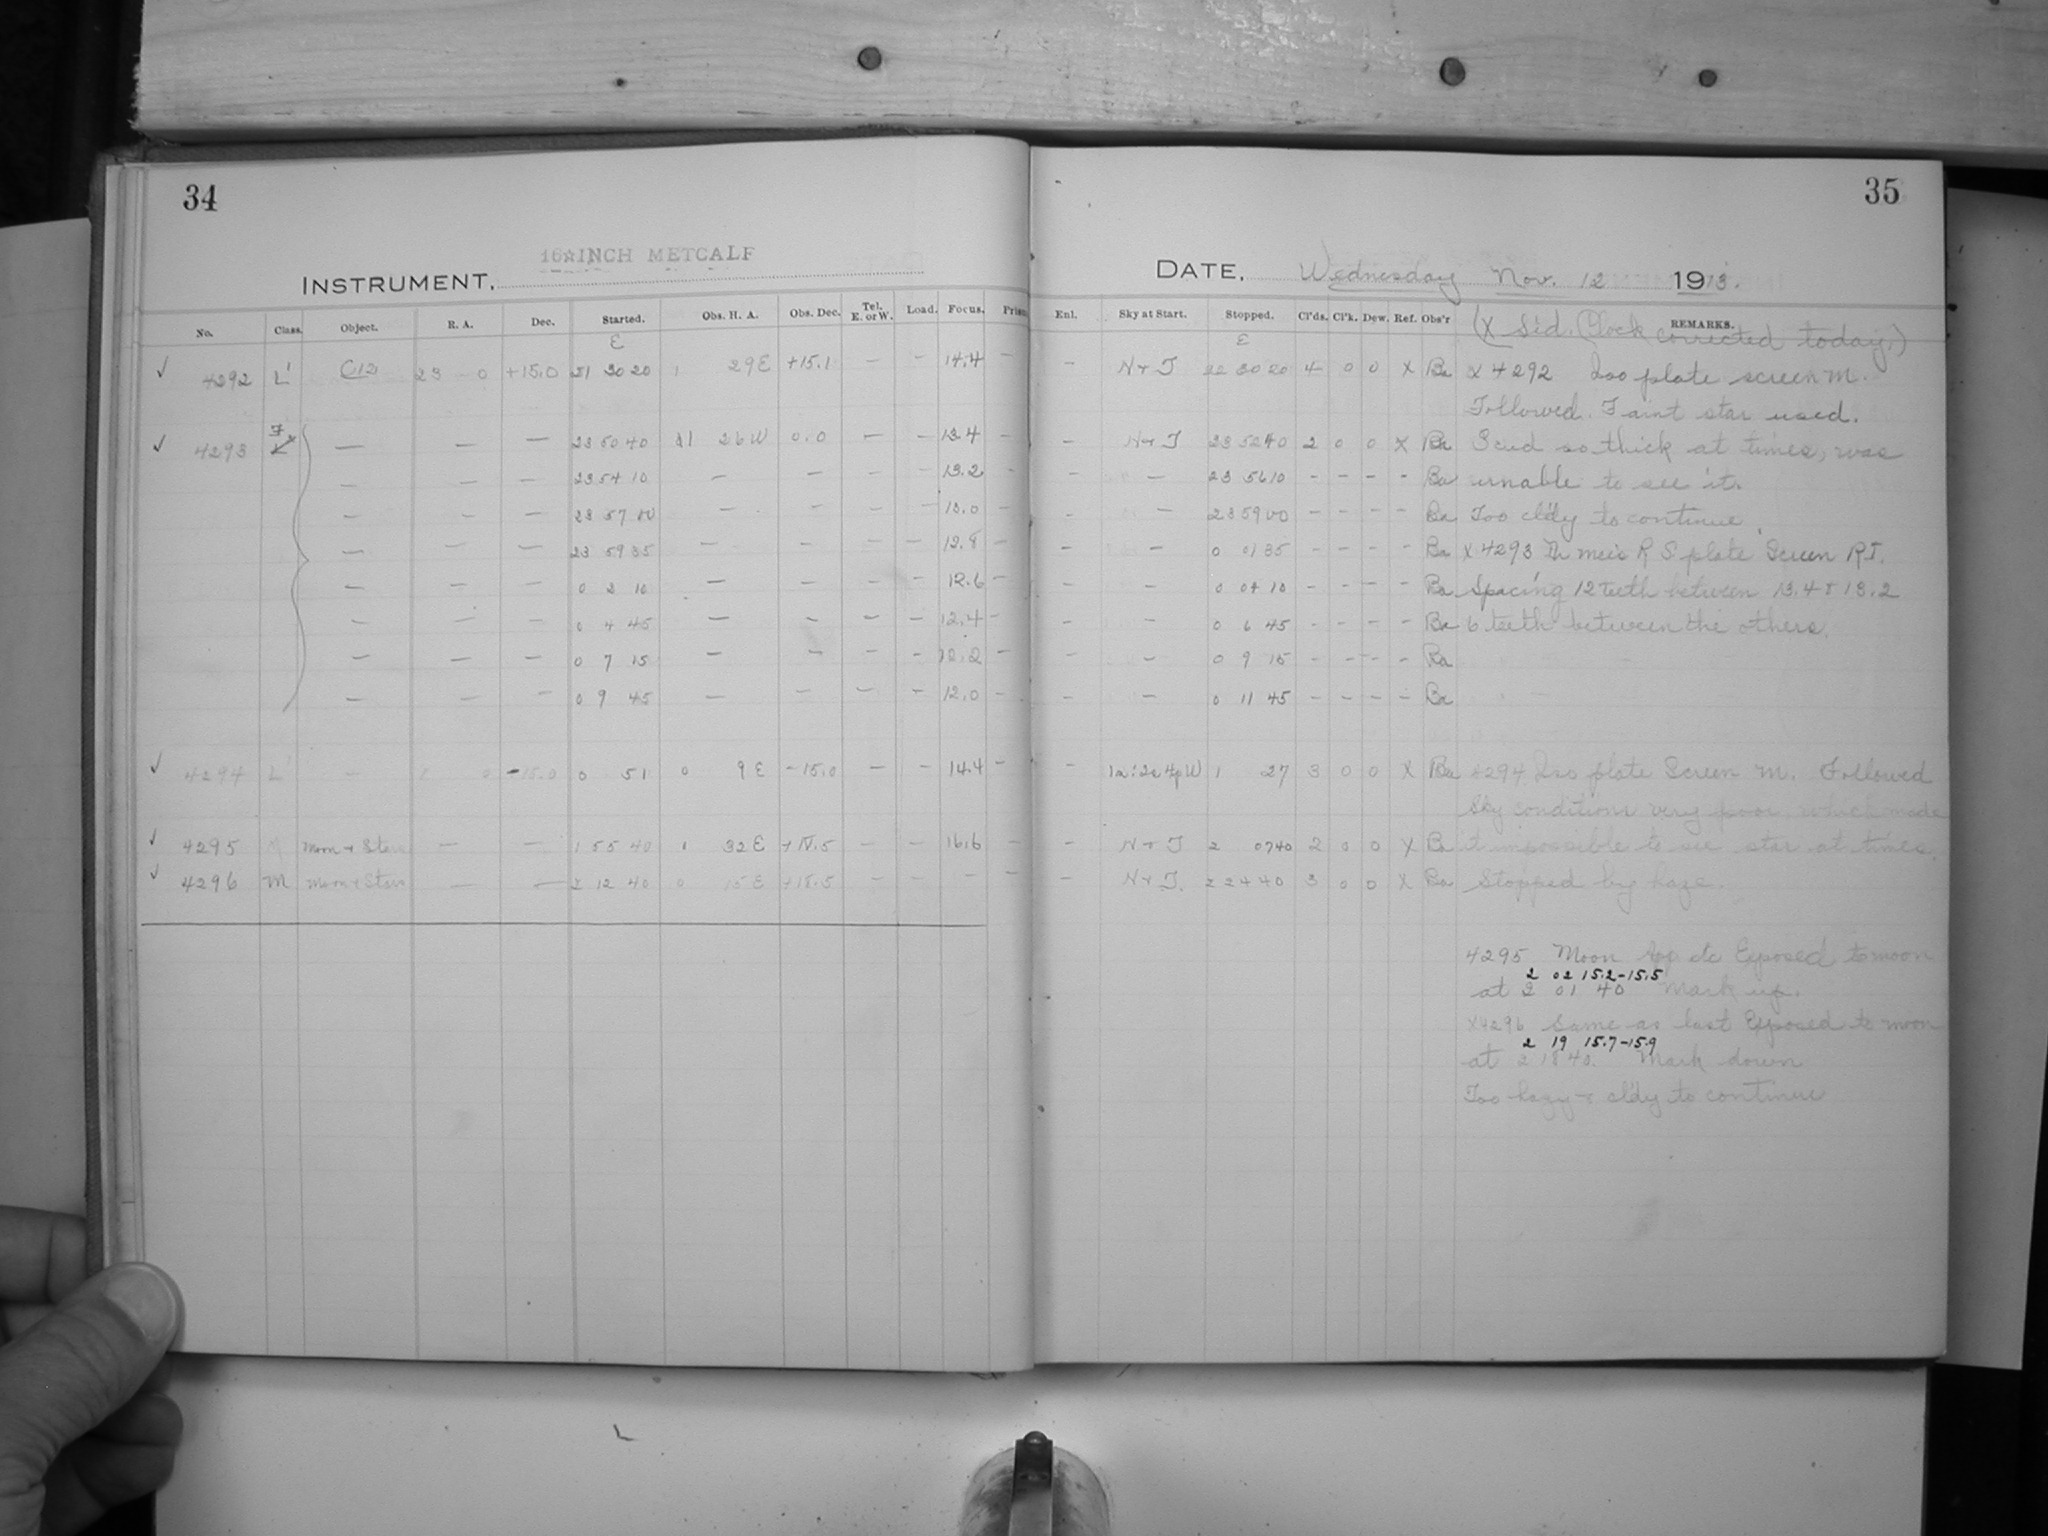 34
16 INCH METCALF
INSTRUMENT,
No. Class. Object. R. A. Dec. Started. Obs. H. A. Obs. Dec. Tel. E. or W. Load. Focus. Prism
E
✓ 4292 L' C12 23 0 +15.0 21 30 20 1 29 E +15.1 — — 14.4 —
✓ 4293 — — — 23 50 40 1 26 W 0.0 — — 13.4 —
— — — 23 54 10 — — — — 13.2 —
— — — 23 57 00 — — — — 13.0 —
— — — 23 59 35 — — — — 12.8 —
— — — 0 2 10 — — — — 12.6 —
— — — 0 4 45 — — — — 12.4 —
— — — 0 7 15 — — — — 12.2 —
— — — 0 9 45 — — — — 12.0 —
✓ 4294 L' — 0 -15.0 0 51 0 9 E -15.0 — — 14.4 —
✓ 4295 Moon + Stars — — 1 55 40 0 32 E — — 16.6 —
✓ 4296 M Moon + Stars — — 2 12 40 0 15 E +18.5 — — — —
35
DATE, Wednesday Nov. 12 1913.
Enl. Sky at Start. Stopped. Cl'ds. Cl'k. Dew. Ref. Obs'r REMARKS.
(X Sid. Clock corrected today.)
E
— N + T 22 30 20 4 0 0 X Ba X 4292 Iso plate screen M.
Followed. Faint star used.
— N + T 23 52 40 2 0 0 X Ba Scud so thick at times, was
— — 23 56 10 — — — — Ba unable to see it.
— — 23 59 00 — — — — Ba Too cl'dy to continue.
— — 0 01 35 — — — — Ba X 4293 R S plate Screen R I.
— — 0 04 10 — — — — Ba Spacing 12 teeth between 13.4 + 13.2
— — 0 6 45 — — — — Ba 6 teeth between the others.
— — 0 9 15 — — — — Ba
— — 0 11 45 — — — — Ba
— 1 27 3 0 0 X Ba 4294 Iso plate Screen M. Followed
Sky conditions very poor which made
— N + T 2 07 40 2 0 0 X Ba it impossible to see star at times.
— N + T. 2 24 40 3 0 0 X Ba Stopped by haze.
4295 Moon App etc Exposed to moon
2 02 15.2-15.5
at 2 01 40 Mark up.
X4296 Same as last Exposed to moon
2 19 15.7-15.9
at 2 18 40. Mark down
Too hazy + cl'dy to continue